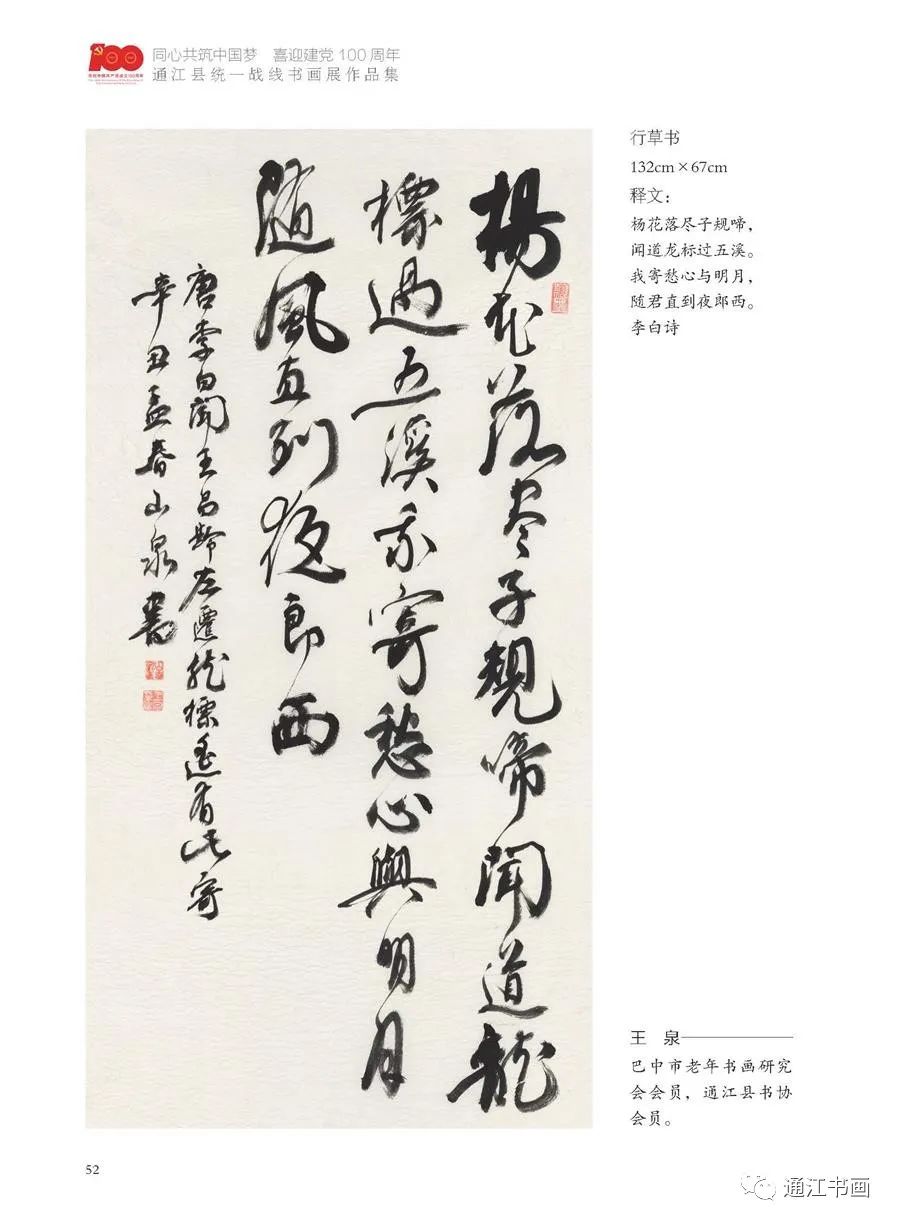 同心共筑中国梦 喜迎建党100周年
通江县统一战线书画展作品集
100
楊花落尽子規啼聞道龍
標過五溪我寄愁心與明月
随風直到夜郎西
唐李白聞王昌齡左遷龙標遥有此寄
辛丑孟春山泉書
行草书
132cm×67cm
释文：
杨花落尽子规啼，
闻道龙标过五溪。
我寄愁心与明月，
随君直到夜郎西。
李白诗
王 泉
巴中市老年书画研究
会会员，通江县书协
会员。
52
通江书画